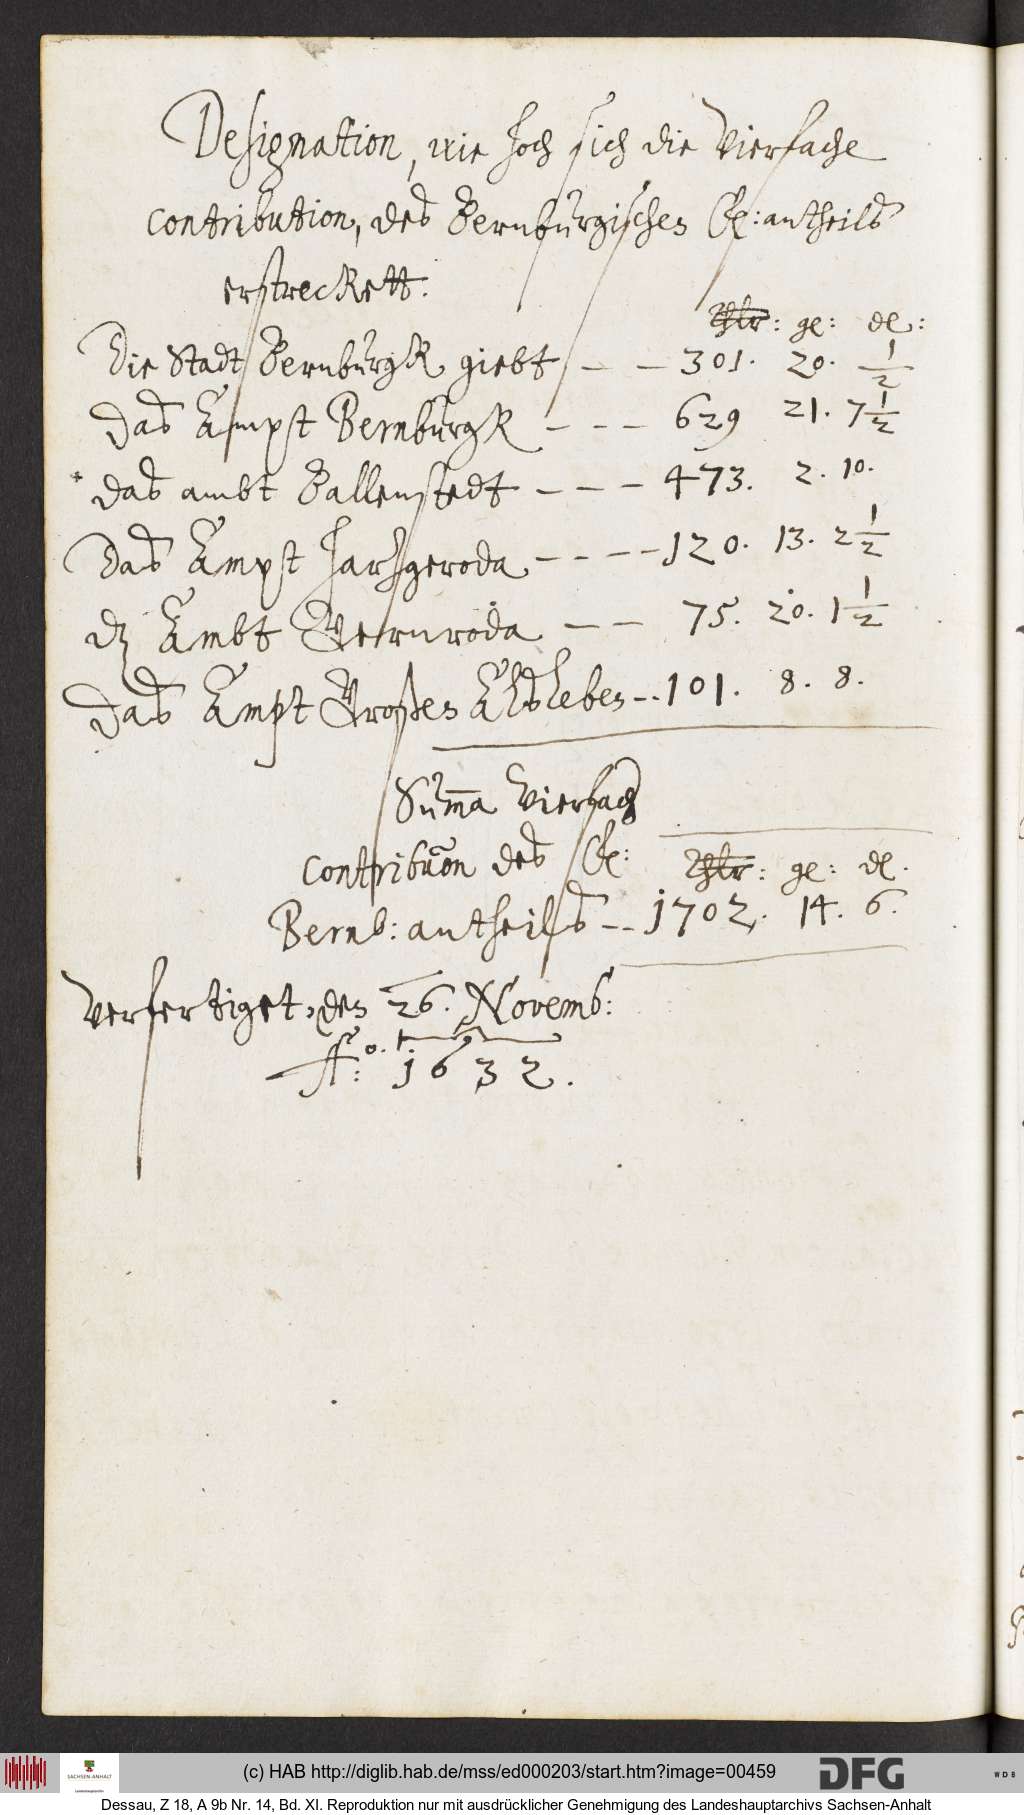 Designation, wie hoch sich die Vierfache
contribution, des Bernburgischen Ge: antheilß
erstreckett.
Thlr: ge: de:
Die Stadt Bernburgk giebt – – 301. 20. 1/2
Das Ampst Bernburgk – – – 629 21. 7 1/2
das ambt Ballenstedt – – – 473. 2. 10.
Das Ampst Hartzgeroda – – – – 120. 13. 2 1/2
dz Ambt Gernroda – – 75. 20. 1 1/2
Das Ampt Großen Alßleben – . 101. 8. 8.
Summa Vierfach
contribuon des Ge: Thlr: ge: de.
Bernb: antheilß – – 1702. 14. 6.
Verfertiget, den 26. Novemb:
Ao: 1632.
SACHSEN-ANHALT
(c) HAB http://diglib.hab.de/mss/ed000203/start.htm?image=00459
DFG
WDB
Dessau, Z 18, A 9b Nr. 14, Bd. XI. Reproduktion nur mit ausdrücklicher Genehmigung des Landeshauptarchivs Sachsen-Anhalt